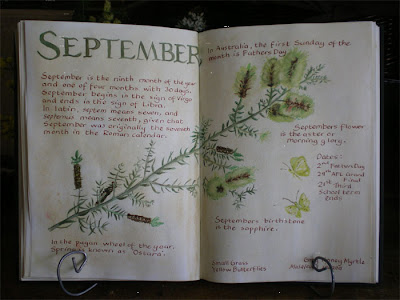 SEPTEMBER
September is the ninth month of the year
and one of four months with 30 days.
September begins in the sign of Virgo
and ends in the sign of Libra.
In latin, septem means seven, and
septimus means seventh, given that
September was originally the seventh
month in the Roman calendar.
In the pagan wheel of the year,
Spring is known as 'Ostara'.
In Australia, the first Sunday of the
month is Fathers Day.
Septembers flower
is the aster or
morning glory.
Dates:
2nd Fathers Day
28th AFL Grand
Final
21st Third
School term
Ends
Septembers birthstone
is the sapphire.
Small Grass
Yellow Butterflies
Myrtle